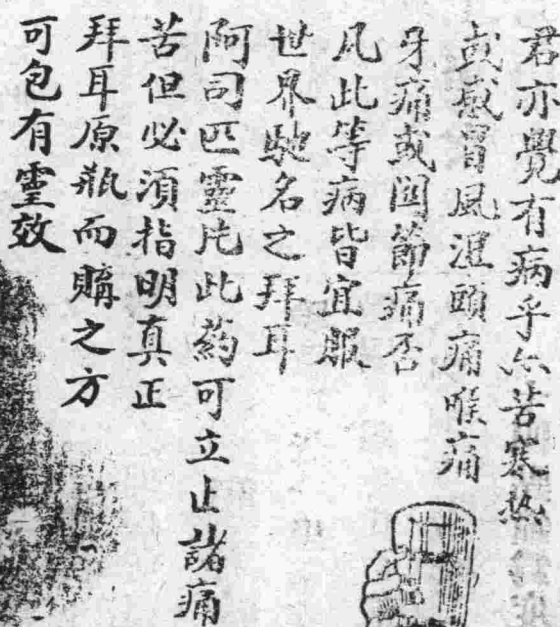 君亦覺有病乎尔苦寒热
或感冒風湿頭痛喉痛
牙痛或関節痛否
凡此等病皆宜服
世界馳名之拜耳
阿司匹靈片此葯可立止諸痛
苦但必須指明真正
拜耳原瓶而購之方
可包有靈效